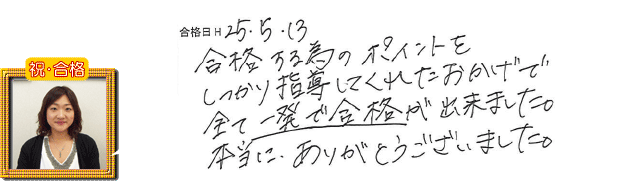 合格日 H 25.5.13
合格する為のポイントを
しっかり指導してくれたおかげで
全て一発で合格が出来ました。
本当に、ありがとうございました。
祝・合格